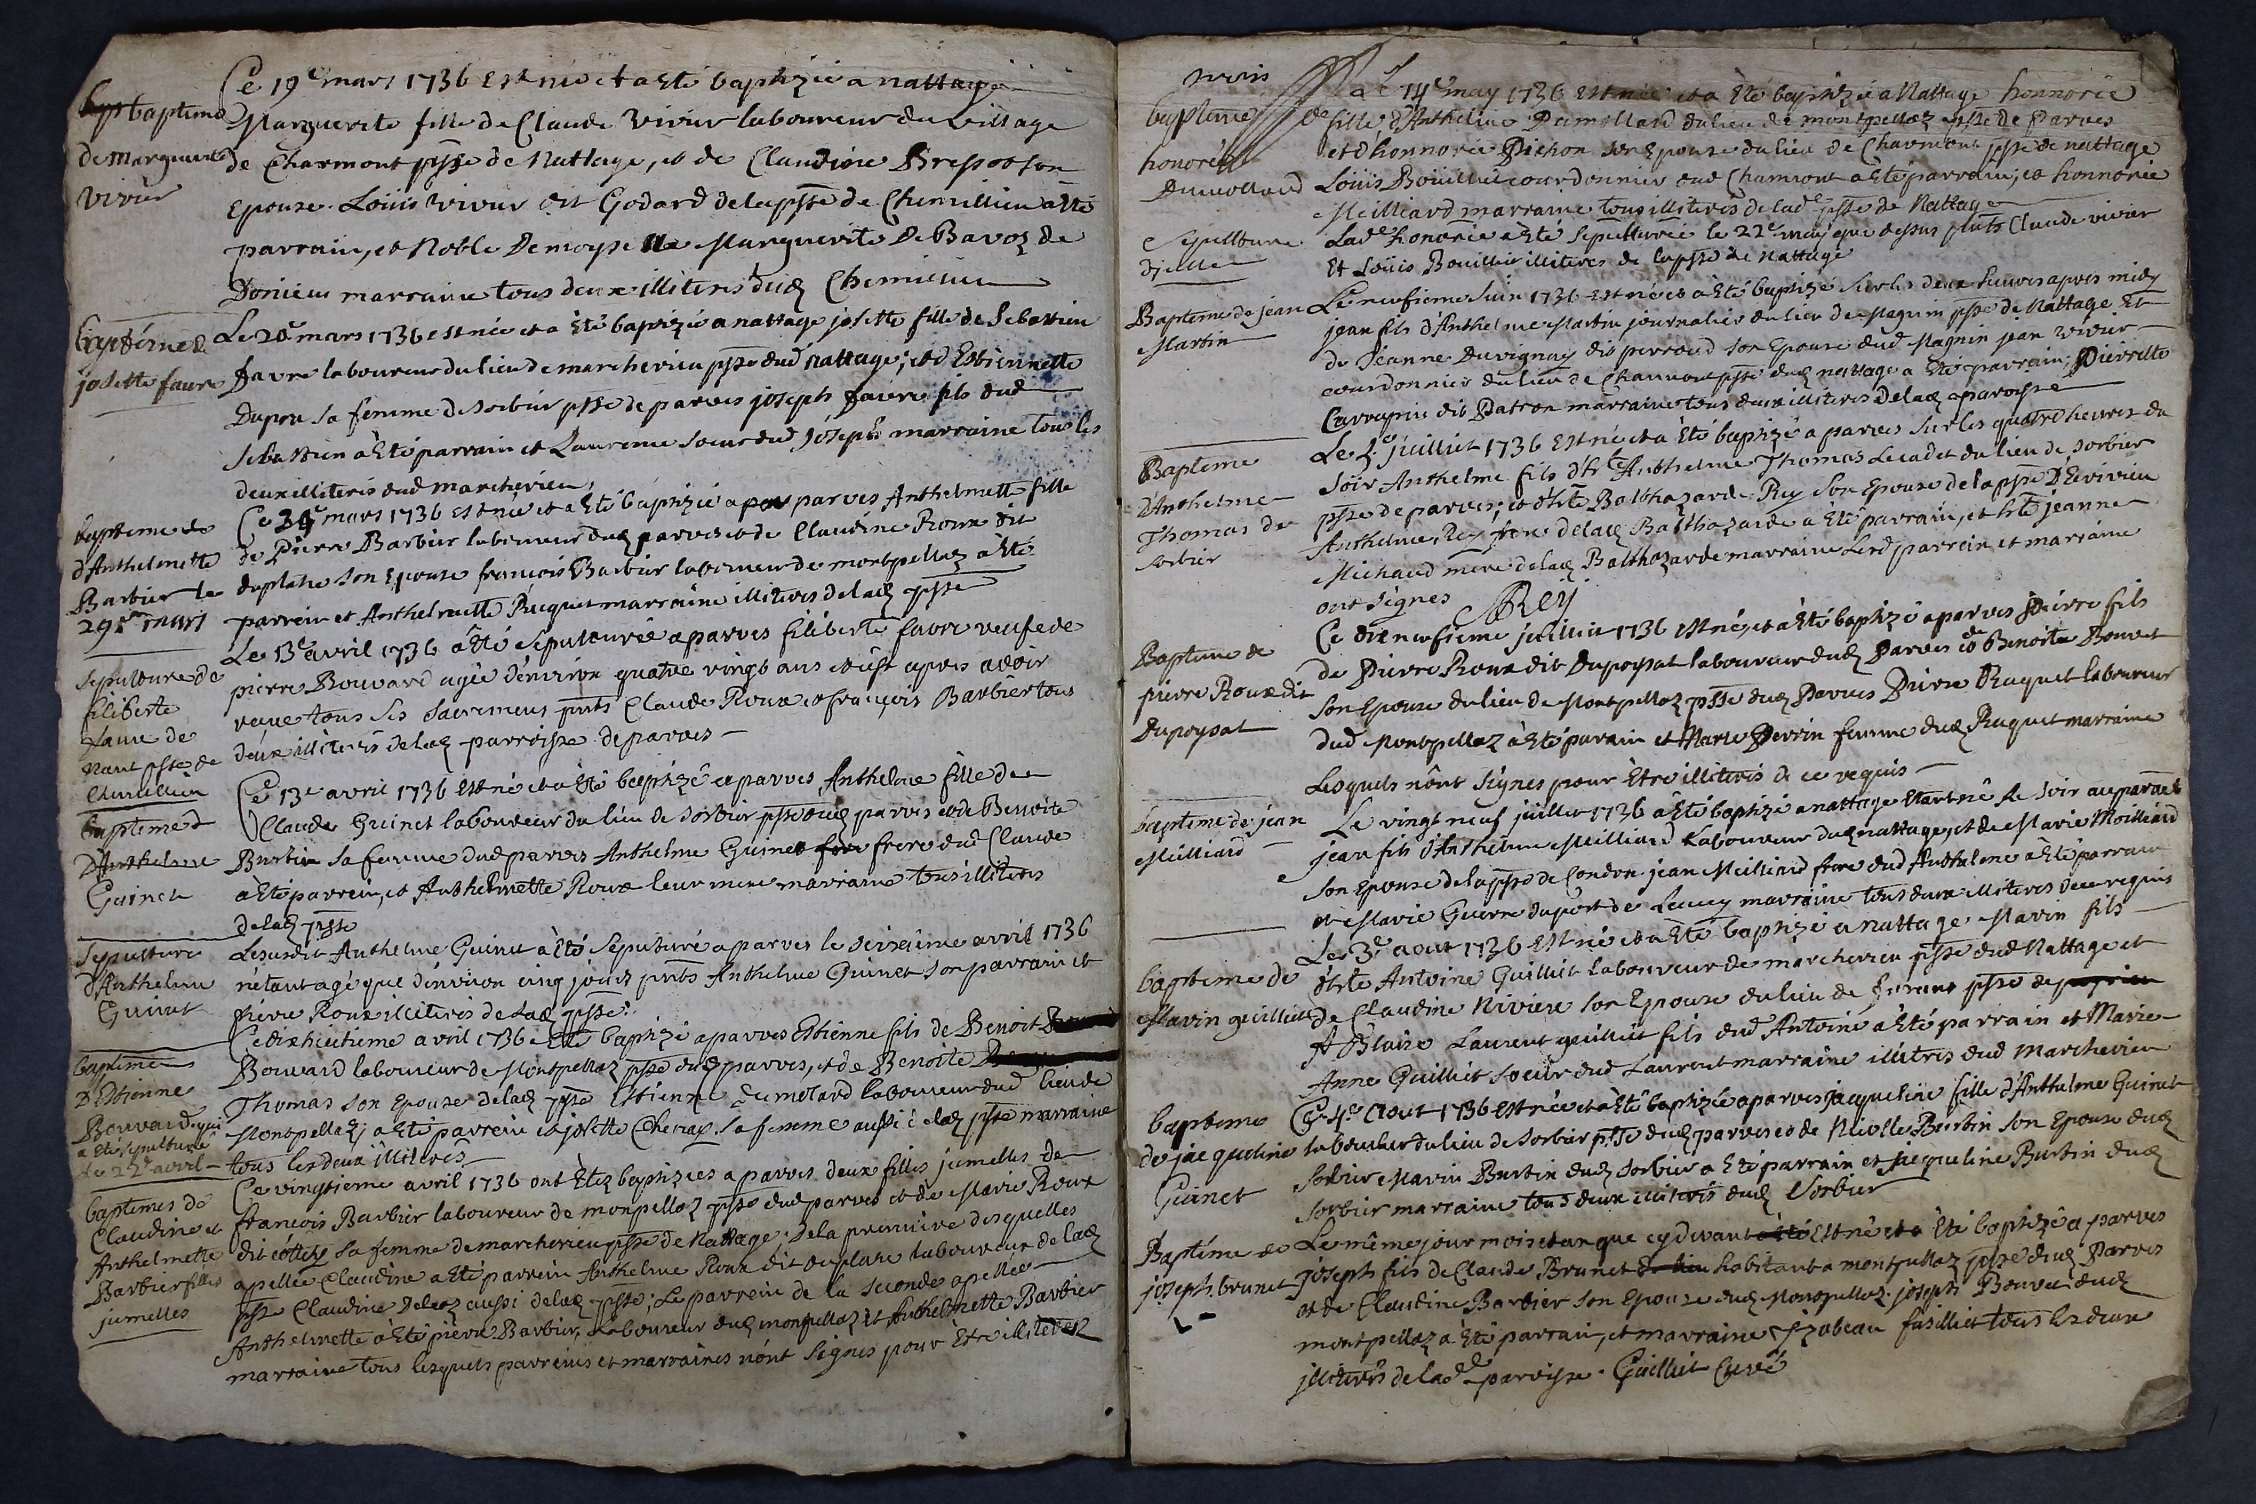 bapteme
de Marguerite
Vivier
Ce 19e mars 1736 Est née et a Eté baptizée a nattage
Marguerite fille de Claude Vivier laboureur du village
de Charmont psse de Nattage, et de Claudine Bressot son
Epouse. Loüis Vivier dit Godard de la psse de Chemillieu a été
parrain, et Noble Demoyselle Marguerite De Bavoz de
Donieu marraine tous deux illiteris dud Chemillieu
bapteme de
josette favre
Le 20e mars 1736 est née et a Eté baptizée a nattage josette fille de Sebastien
favre laboureur du lieu de marcherieu psse dud nattage; et d'Estiennette
Dupon sa femme de sorbier psse de parves joseph favre fils dud
Sebastien a Eté parrain et Laurence soeur dud Joseph marraine tous les
deux illiteris dud marcherieu,
baptême de
d'Anthelmette
Barbier le
29e mars
Ce 29e mars 1736 est née et a Eté baptizée a parves Anthelmette fille
de Pierre Barbier laboureur dud parves et de Claudine Roux dit
duplatre son Epouse françois Barbier laboureur de montpellaz a Eté
parrein et Anthelmette Ruquet marraine illiteris de lad psse
Sepulture de
filiberte
favre de
nant psse de
Chemillieu
Le 13e avril 1736 a Eté Sepulturée a parves filiberte favre veufe de
pierre Bouvard agée d'environ quatre vingt ans et ce apres avoir
reçue tous ses Sacremens pnts Claude Roux et françois Barbier tous
deux illiteris de lad parroisse de parves
bapteme d
D'Anthelme
Guinet
Ce 13e avril 1736 Est né et a Eté baptizé a parves Anthelme fille de
Claude Guinet laboureur du lieu de sorbier psse dud parves et de Benoite
Burtin sa femme dud parves Anthelme Guinet frere dud Claude
a Eté parrein, et Anthelmette Roux leur mere marraine tous illiteris
de lad psse
Sepulture
d'Anthelme
Guinet
Le susdit Anthelme Guinet a Eté Sepulturé a parves le seizieme avril 1736
n'étant agé que d'environ cinq jours pnts Anthelme Guinet son parrain et
pierre Roux illiteris de lad psse
bapteme
D'Estienne
Bouvard qui
a Eté sepulturé
le 22e avril
Ce dixhuitieme avril 1736 a Eté baptizé a parves Estienne fils de Benoit
Bouvard laboureur de Montpellaz psse dud parves, et de Benoite
Thomas son Epouse de lad psse Estienne Dumolard laboureur dud lieu de
Montpellaz a Eté parrein et josette Cheraz sa femme aussi de lad psse marraine
tous les deux illiteris
baptemes de
Claudine et
Anthelmette
Barbier filles
jumelles
Ce vingtieme avril 1736 ont Etez baptizees a parves deux filles jumelles de
françois Barbier laboureur de monpellaz psse dud parves et de Marie Roux
dit sa femme de marcherieu psse de Nattage. De la premiere desquelles
apellée Claudine a Eté parrein Anthelme Roux dit duplatre laboureur de lad
psse Claudine aussi de lad psse; Le parrein de la seconde apellée
Anthelmette a Eté pierre Barbier, Laboureur dud monpellaz Et Anthelmette Barbier
marraine tous lesquels parreins et marraines n'ont Signes pour Etre illiterez
baptême
honorée
Dumollard
Le 14e may 1736 Est née et a Eté baptizée a Nattage honnorée
fille d'Anthelme Dumollard du lieu de montpellaz psse de Parves
et d'honnorée Pichon son Epouse du lieu de Charmont psse de nattage
Loüis Boüillié courdonnier dud Charmont a Eté parrain, et honnorée
Meilliard marraine tous illiteris de lad psse de Nattage
Sepulture
d'jcelle
Lade honorée a Eté Sepulturée le 22e may que dessus pnts Claude vivier
Et Loüis Bouillié illiteris de la psse de nattage
Bapteme de jean
Martin
Le neufieme Juin 1736 est né et a Eté baptizé Sur les deux heures apres midy
jean fils d'Anthelme Martin journalier du lieu de Magnin psse de Nattage Et
de Jeanne Duvignay dit perroud son Epouse dud Magnin jean vivier
courdonnier du lieu de Charmont psse dud nattage a Eté parrain; Pierrette
Carrapin dit Patron marraine tous deux illiteris de lad paroisse
Bapteme
d'Anthelme
Thomas de
sorbier
Le juillet 1736 Est né et a Eté baptizé a parves Sur les quatre heures du
soir Anthelme fils d'hte Anthelme Thomas Lecadet du lieu de sorbier
psse de parves; et d'hte Balthazarde Rey son Epouse de la psse D'Evirieu
Anthelme Rey frere de lad Balthazarde a Eté parrain, et hte jeanne
Michaud mere de lad Balthazarde marraine Lesd parrein et marraine
ont signes Rey
Bapteme de
pierre Roux dit
Dupoysat
Ce dix neufieme juillet 1736 est né, et a Eté baptizé a parves pierre fils
de Pierre Roux dit Dupoysat laboureur dud Parves et de Benoite Bouvet
son Epouse du lieu de Montpellaz psse dud Parves Pierre Ruquet laboureur
dud Montpellaz a Eté parrain et Marie Perrin femme dud Ruquet marraine
Lesquels n'ont Signes pour Etre illiteris de ce requis
bapteme de jean
Meilliard
Le vingt neuf juillet 1736 a Eté baptizé a nattage Etant né le soir auparavt
jean fils d'Anthelme Meilliard Laboureur dud nattage, et de Marie Moilliard
son Epouse de la psse de Condon jean Meilliard frere dud Anthelme a Eté parrain
et Marie Guerre du port de Lucey marraine tous deux illiteris de ce requis
bapteme de
Mavin guilliet
Le 3e aout 1736 Est né et a Eté baptizé a nattage Mavin fils
d'hte Antoine Guilliet laboureur de marcherieu psse dud Nattage et
de Claudine Niviere son Epouse du lieu de psse de
St Blaise Laurent guilliet fils dud Antoine a Eté parrain et Marie
Anne Guilliet soeur dud Laurent marraine illitris dud Marcherieu
bapteme
de jacqueline
Guinet
Ce 4e Aout 1736 Est née et a Eté baptizée a parves jacqueline fille d'Anthelme Guinet
laboureur du lieu de Sorbier psse dud parves et de Nicolle Burtin son Epouse dud
Sorbier Mavin Burtin dud Sorbier a Eté parrain et jacqueline Burtin dud
Sorbier marraine tous deux illiteris dud Sorbier
Baptême de
joseph brunet
Le même jour mois et an que cy devant est né et a Eté baptizé a parves
joseph fils de Claude Brunet habitant a montpellaz psse dud Parves
et de Claudine Barbier son Epouse dud Montpellaz. joseph Bouvié dud
montpellaz a Eté parrain, et marraine jzabeau fusilliet tous les deux
jlliteris de lade paroisse. Guilliet Curé